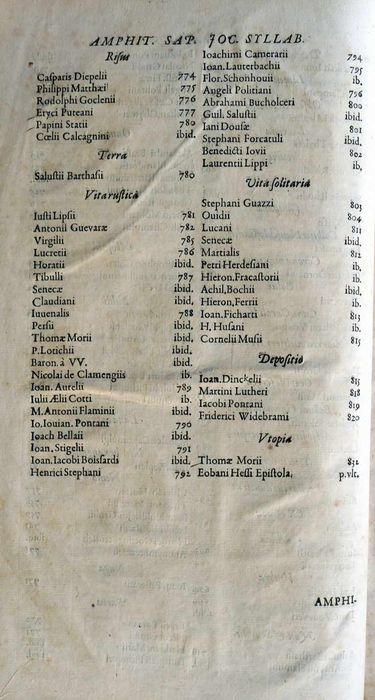 AMPHIT. SAP. JOC. SYLLAB.
Risus
Casparis Diepelii 774
Philippi Matthæi 775
Rodolphi Goclenii 776
Eryci Puteani 777
Papini Statii 780
Cœlii Calcagnini ibid.
Terra
Salustii Barthasii 780
Vita rustica
Iusti Lipsii 781
Antonii Guevaræ 782
Virgilii 785
Lucretii 786
Horatii ibid.
Tibulli 787
Senecæ ibid.
Claudiani ibid.
Iuuenalis 788
Persii ibid.
Thomæ Morii ibid.
P. Lotichii ibid.
Baron. à VV. ibid.
Nicolai de Clamengiis ib.
Ioan. Aurelii 789
Iulii Ælii Cotti ib.
M. Antonii Flaminii ibid.
Io. Iouian. Pontani 790
Ioach Bellaii ibid.
Ioan. Stigelii 791
Ioan. Iacobi Boissardi ibid.
Henrici Stephani 792
Ioachimi Camerarii 794
Ioan. Lauterbachii 795
Flor. Schonhouii ib.
Angeli Politiani 796
Abrahami Bucholceri 800
Guil. Salustii ibid.
Iani Dousæ 801
Stephani Forcatuli ibid.
Benedicti Iovii 802
Laurentii Lippi ib.
Vita solitaria
Stephani Guazzi 803
Ouidii 804
Lucani 811
Senecæ ibid.
Martialis 812
Petri Herdesiani ib.
Hieron. Fracastorii ib.
Achil. Bochii ibid.
Hieron. Ferrii ib.
Ioan. Ficharti 813
H. Husani ib.
Cornelii Musii 815
Depositio
Ioan. Dinckelii 815
Martini Lutheri 818
Iacobi Pontani 819
Friderici Widebrami 820
Vtopia
Thomæ Morii 832
Eobani Hessi Epistola, p. vlt.
AMPHI-